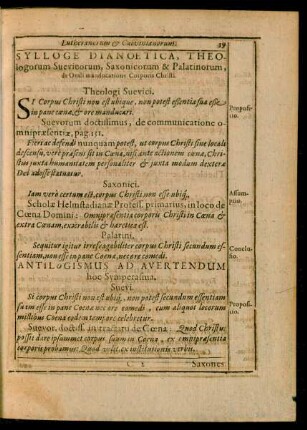 Lutheranorum & Calvinianorum. 19
SYLLOGE DIANOETICA, THEO-
logorum Suevicorum, Saxonicorum & Palatinorum,
de Orali manducatione Corporis Christi.
Theologi Suevici.
SI Corpus Christi non est ubique, non potest essentia sua esse
in pane cœnæ, & ore manducari.
Propositio.
Suevorum doctissimus, de communicatione o-
mnipræsentiæ, pag. 151.
Fieri ac defendi nunquam potest, ut corpus Christi sine locali
descensu, verè præsens sit in Cœnâ, nisi ante actionem cœnæ, Chri-
stus juxta humanitatem personaliter & juxta modum dexteræ
Dei adesse statuatur.
Saxonici.
Iam verò certum est, corpus Christi non esse ubiq́;
Assumptio.
Scholæ Helmstadianæ Profess. primarius, in loco de
Cœna Domini: Omnipræsentia corporis Christi in Cœna &
extra Cœnam, execrabilis & hæretica est.
Palatini.
Sequitur igitur irrefragabiliter corpus Christi secundum es-
sentiam, non esse in pane Cœnæ, nec ore comedi.
Conclusio.
ANTILOGISMUS AD AVERTENDUM
hoc Symperasma.
Suevi.
Si corpus Christi non est ubiq́, non potest secundum essentiam
suam esse in pane Cœnæ nec ore comedi, cum aliquot locorum
millibus Cœna eodem tempore celebretur.
Propositio.
Suevor. doctiss. in tractatu de Cœna. Quod Christus
possit dare ipsummet corpus suum in Cœna, ex omnipræsentia
corporis probamus: Quod velit, ex institutionis verbis.
C 2 Saxones